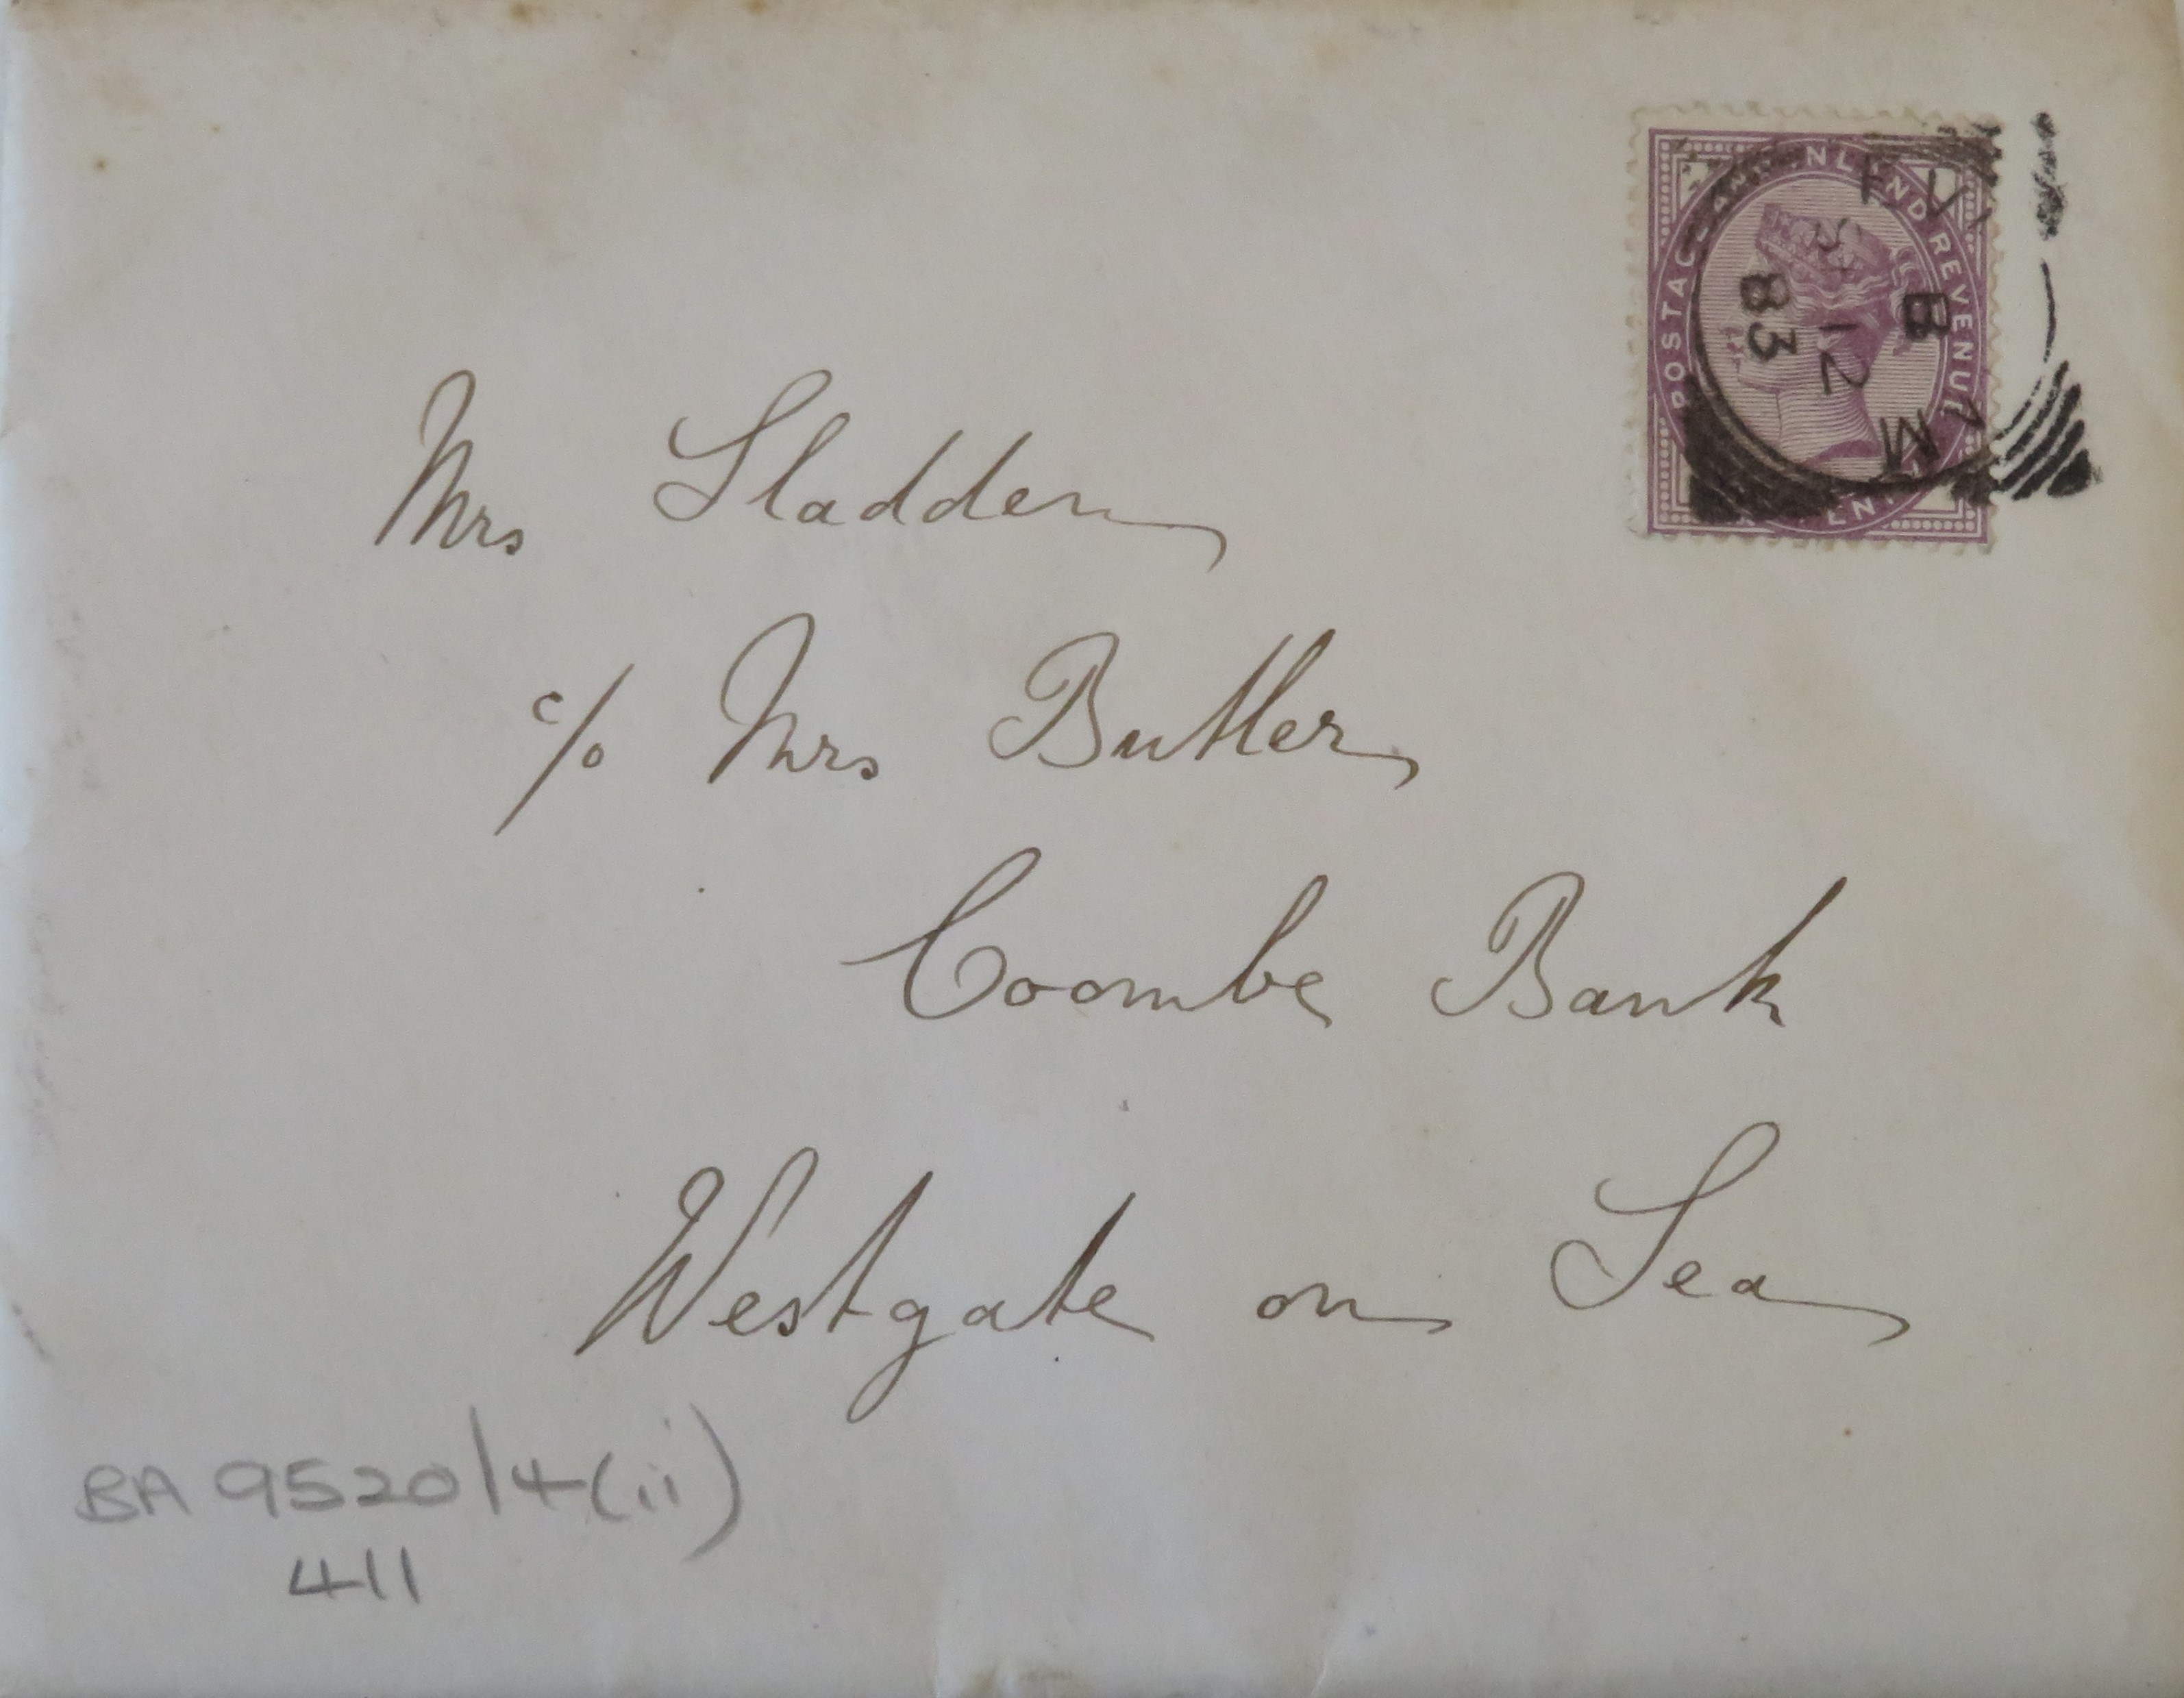 POSTAGE AND INLAND REVENUE
B
12
83
Mrs Sladden
c/o Mrs Butler
Coombe Bank
Westgate on Sea
BA 9520/4(ii)
411